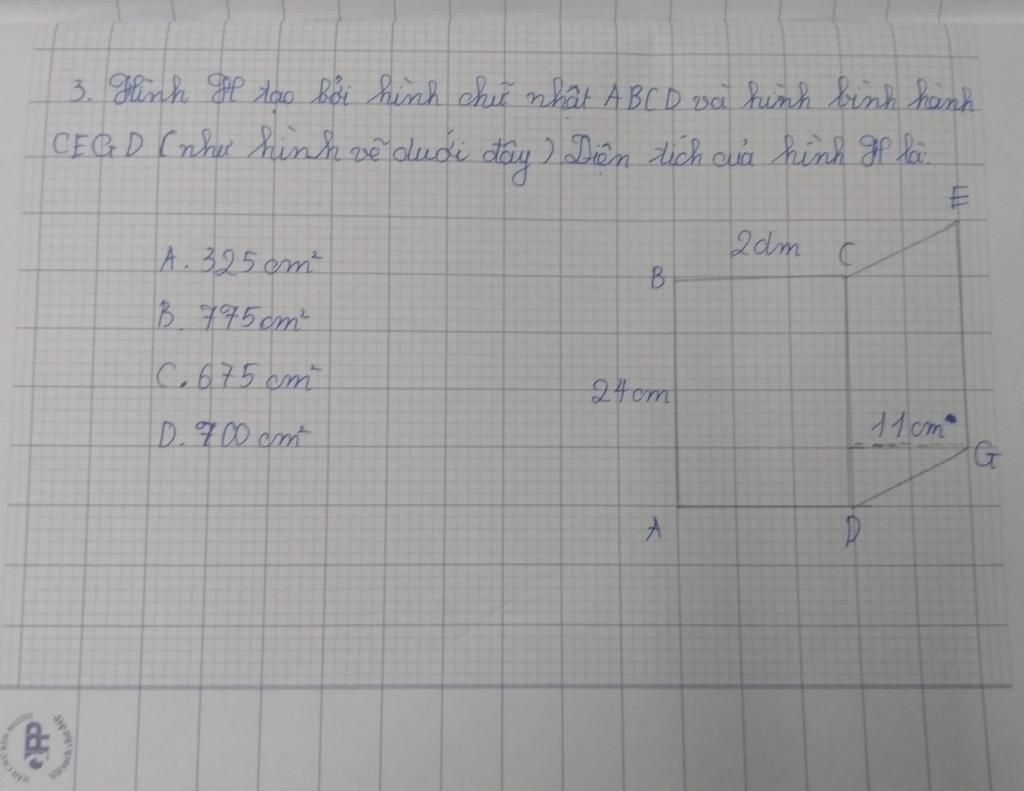 3. Hình H tạo bởi hình chữ nhật ABCD và hình bình hành
CEGD (như hình vẽ dưới đây) Diện tích của hình H là:
E
2dm C
B
A. 325 cm²
B. 775 cm²
C. 675 cm²
24 cm
D. 700 cm²
11 cm
G
A D